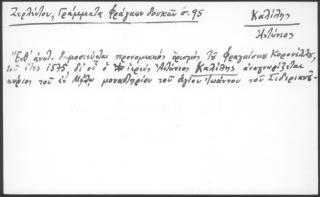 Ζερλέντου, Γράμματα Φράγκων δουκῶν σ. 95
Καλίλης
Ἀντώνιος
Ἔνθ' ἀνωτ. δημοσιεύεται προνομιακὸς ὁρισμὸς τοῦ Φραγκίσκου Κορονέλλου,
τοῦ ἔτους 1575, δι' οὗ ὁ ἱερεὺς Ἀντώνιος Καλίλης ἀναγνωρίζεται
κύριος τοῦ ἐν Μήλῳ μοναστηρίου τοῦ ἁγίου Ἰωάννου τοῦ Σιδεριανοῦ.